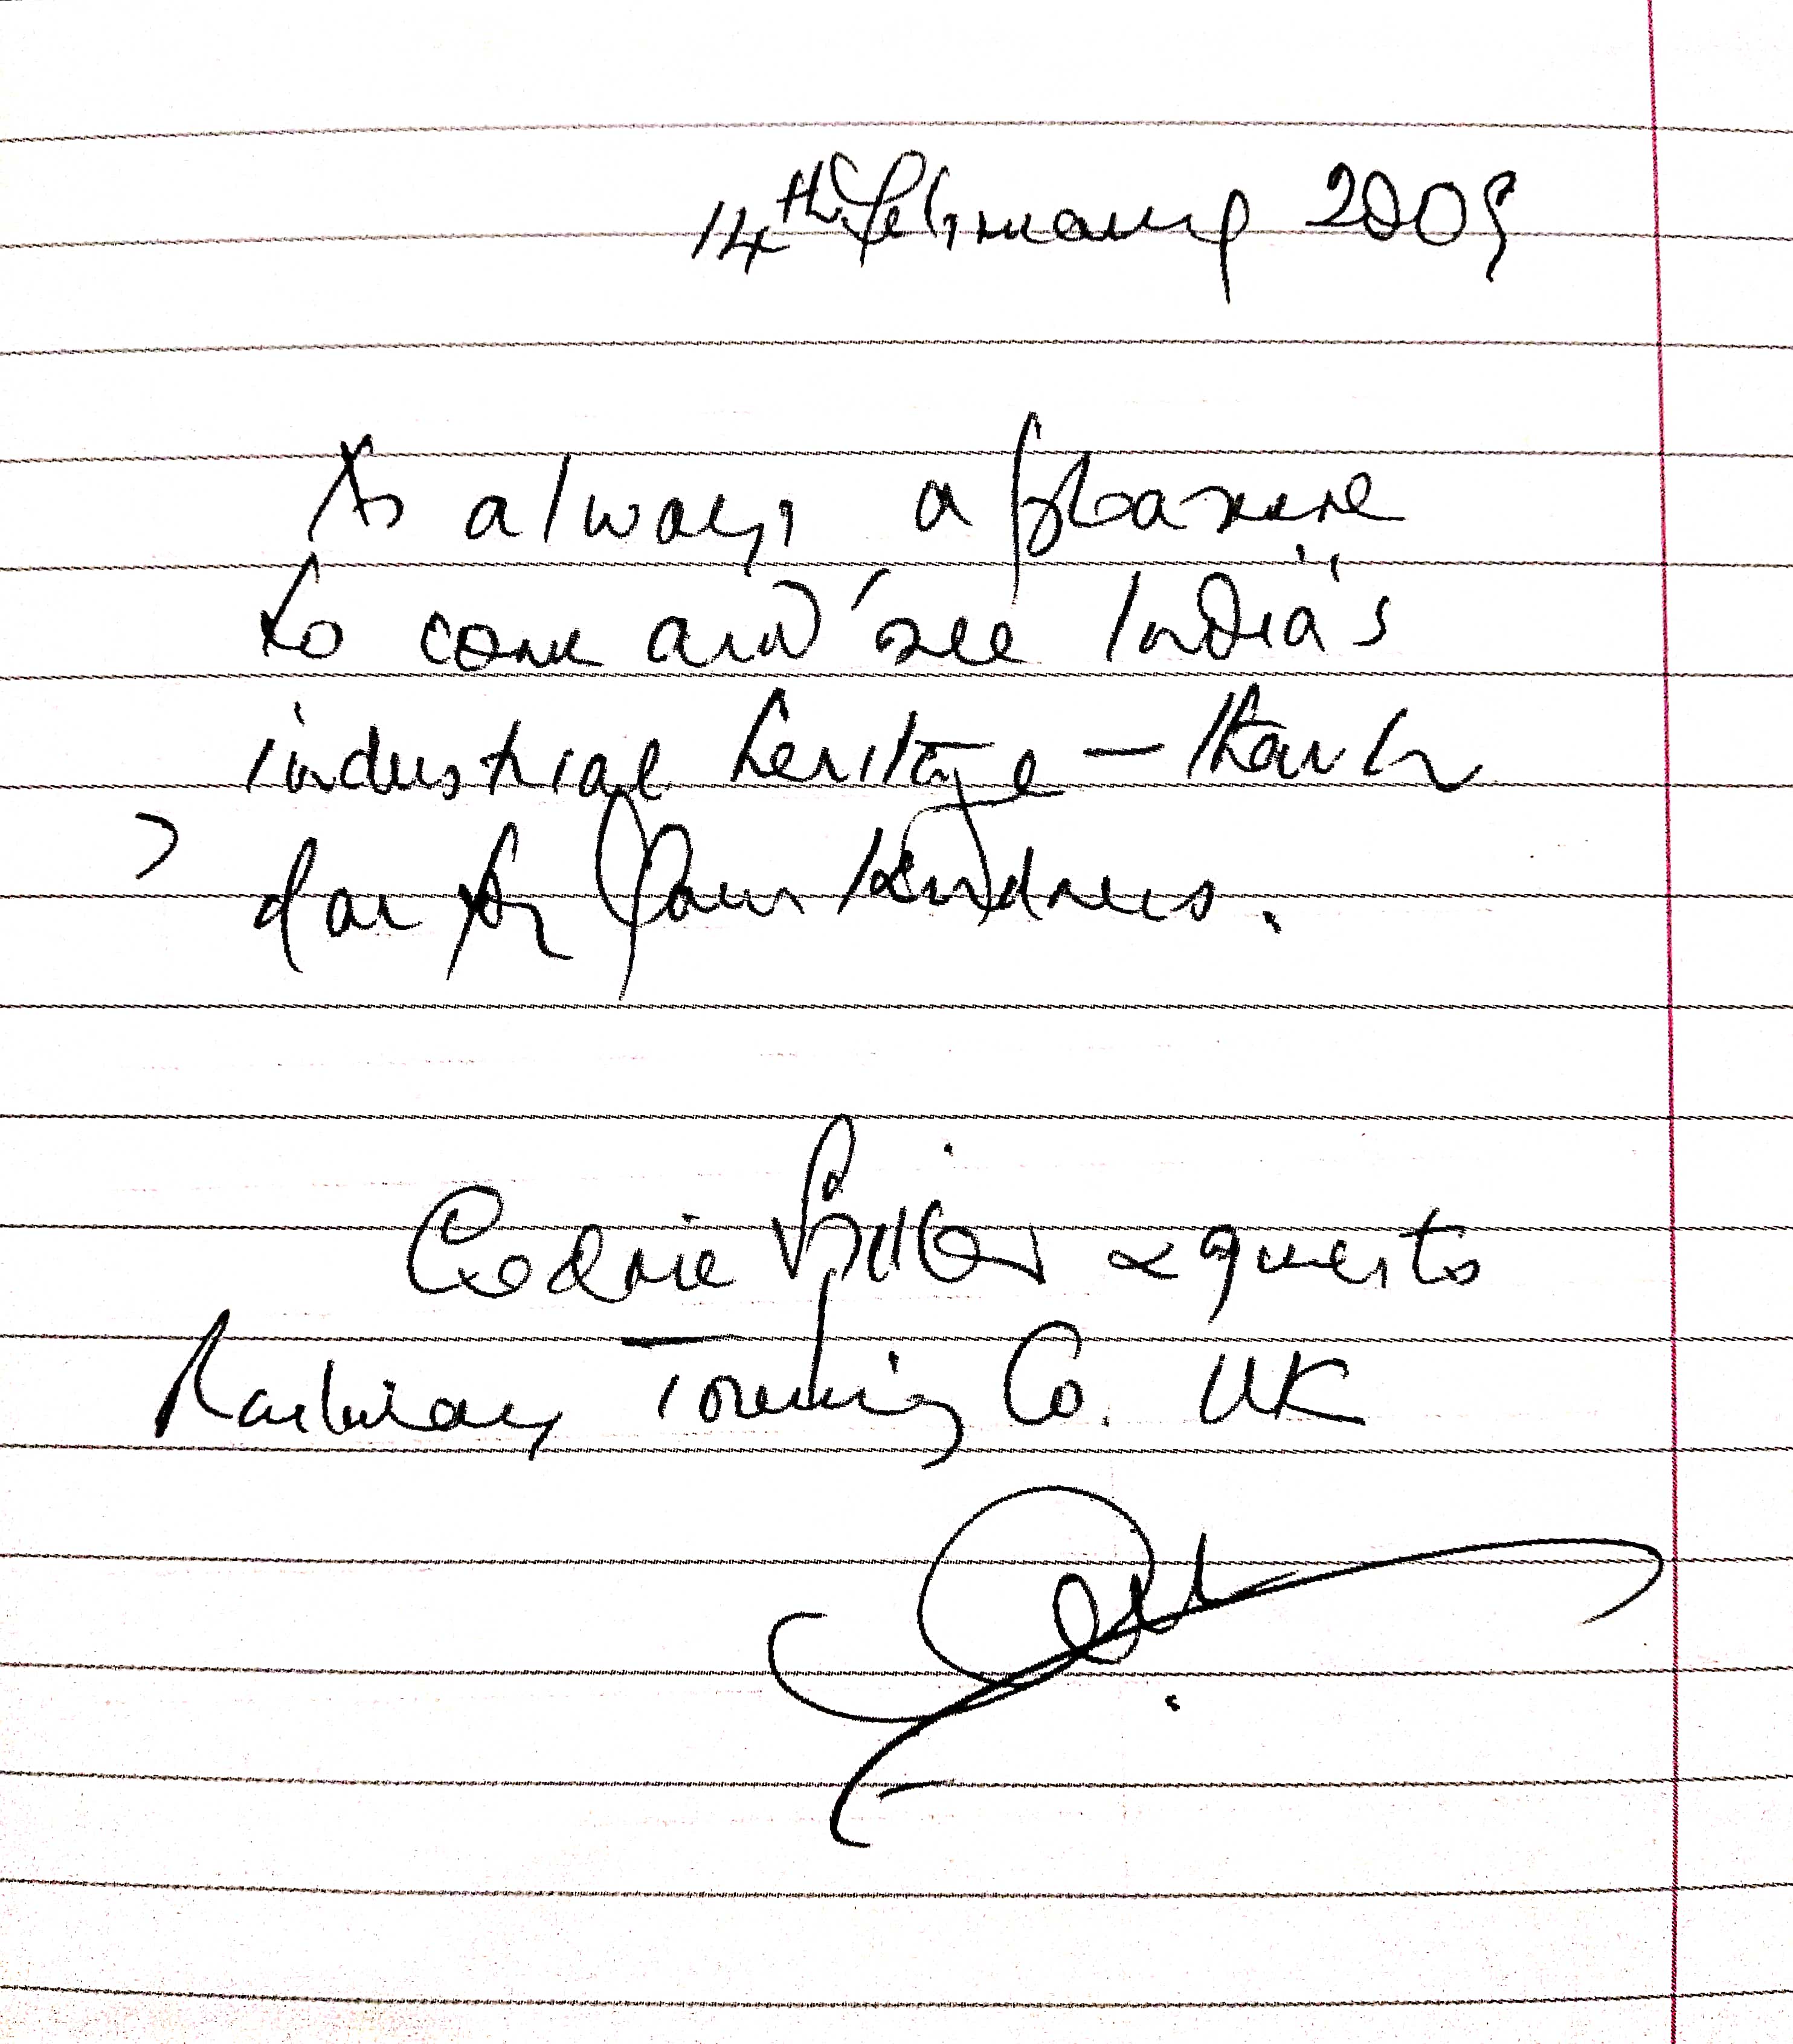 14th February 2009
As always a pleasure
to come and see India's
industrial heritage — thank
you for your kindness.
Cedric & guests
Railway Touring Co. UK